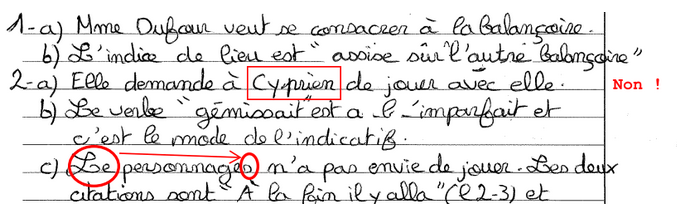 1-a) Mme Dufour veut se consacrer à la balançoire.
b) L'indice de lieu est "assise sur l'autre balançoire"
2-a) Elle demande à Cyprien de jouer avec elle. Non !
b) Le verbe "gémissait" est a l'imparfait et
c'est le mode de l'indicatif.
c) Le personnages n'a pas envie de jouer. Les deux
citations sont "À la fin il y alla" (l 2-3) et